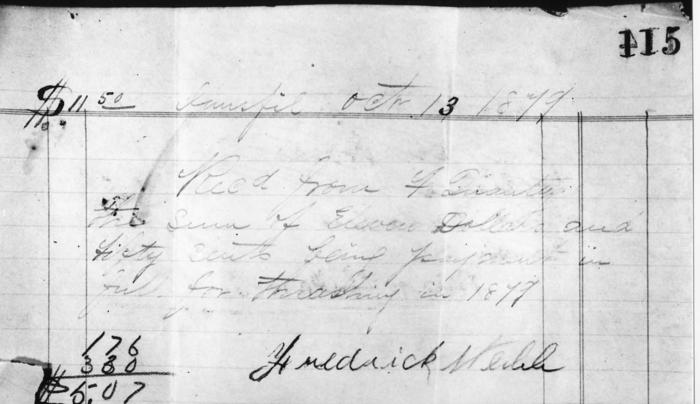 115
$11.50 Oct 13 1879
Recd from F.
the sum of Eleven Dollars and
fifty cents being payment in
full for thrashing in 1879
176
330
$5.07 Fredrick Webb